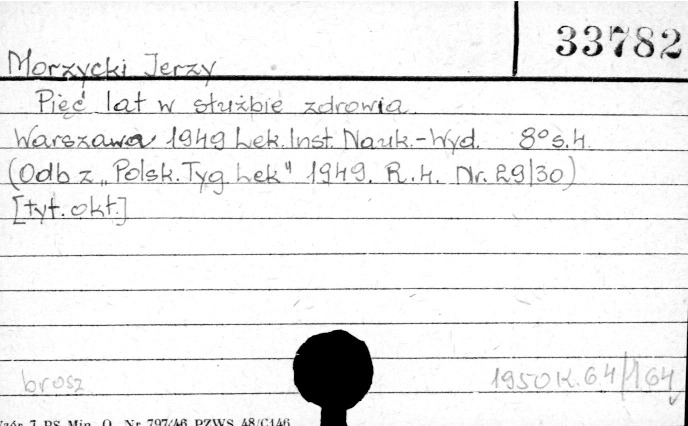 33782
Morzycki Jerzy
Pięć lat w służbie zdrowia
Warszawa 1949 Lek. Inst. Nauk.-Wyd. 8° s.4.
(Odb z „Polsk. Tyg. Lek" 1949. R.4. Nr. 29/30)
[tyt. okł.]
brosz
1950 K. 64/164
Wzór 7 PS Min. O. Nr 797/46 PZWS 48/C446